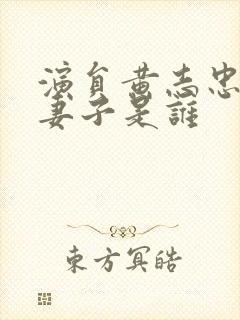 演員黄志忠
妻子是誰
東方冥皓